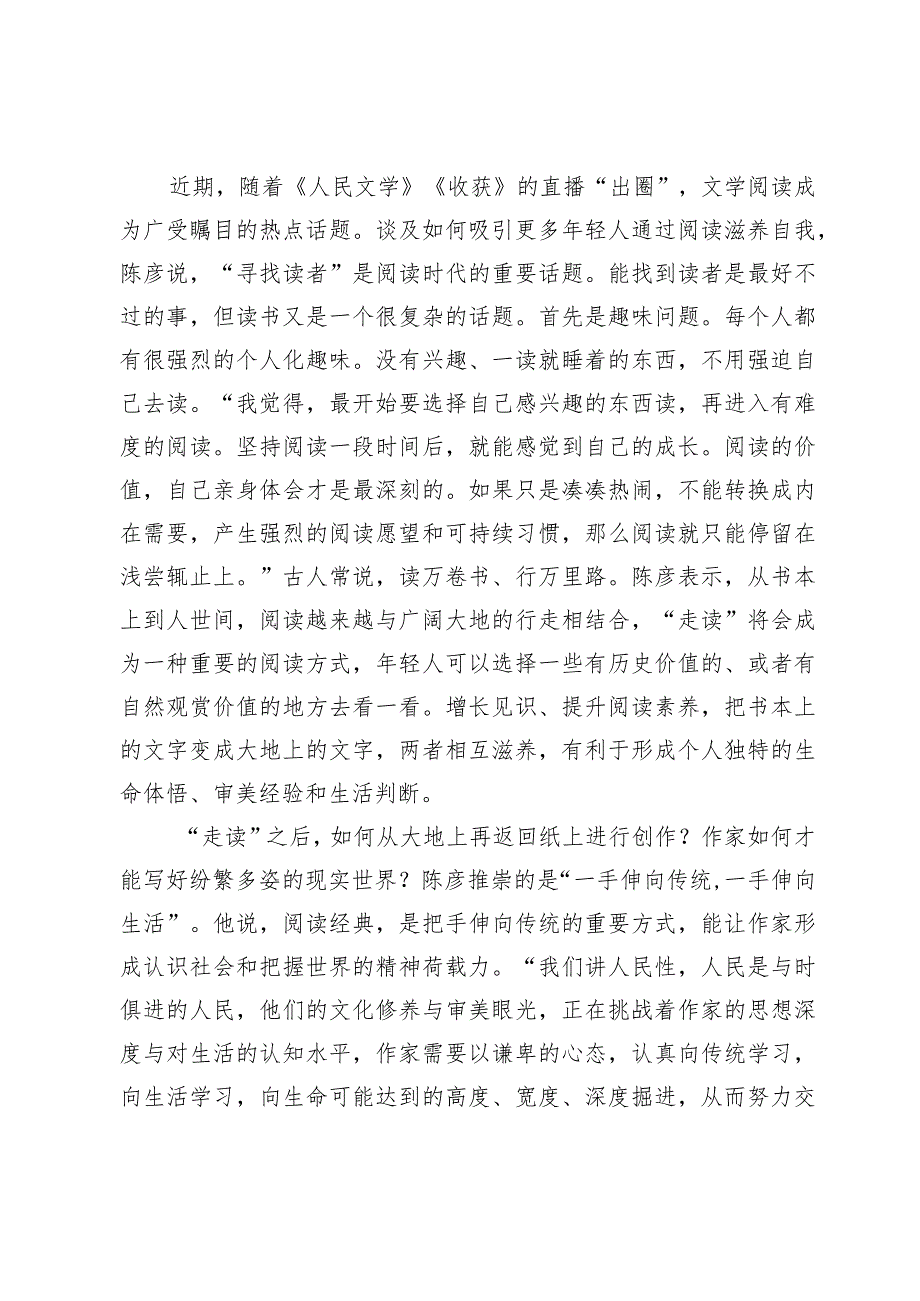 近期，随着《人民文学》《收获》的直播“出圈”，文学阅读成
为广受瞩目的热点话题。谈及如何吸引更多年轻人通过阅读滋养自我，
陈彦说，“寻找读者”是阅读时代的重要话题。能找到读者是最好不
过的事，但读书又是一个很复杂的话题。首先是趣味问题。每个人都
有很强烈的个人化趣味。没有兴趣、一读就睡着的东西，不用强迫自
己去读。“我觉得，最开始要选择自己感兴趣的东西读，再进入有难
度的阅读。坚持阅读一段时间后，就能感觉到自己的成长。阅读的价
值，自己亲身体会才是最深刻的。如果只是凑凑热闹，不能转换成内
在需要，产生强烈的阅读愿望和可持续习惯，那么阅读就只能停留在
浅尝辄止上。”古人常说，读万卷书、行万里路。陈彦表示，从书本
上到人世间，阅读越来越与广阔大地的行走相结合，“走读”将会成
为一种重要的阅读方式，年轻人可以选择一些有历史价值的、或者有
自然观赏价值的地方去看一看。增长见识、提升阅读素养，把书本上
的文字变成大地上的文字，两者相互滋养，有利于形成个人独特的生
命体悟、审美经验和生活判断。
“走读”之后，如何从大地上再返回纸上进行创作？作家如何才
能写好纷繁多姿的现实世界？陈彦推崇的是“一手伸向传统,一手伸向
生活”。他说，阅读经典，是把手伸向传统的重要方式，能让作家形
成认识社会和把握世界的精神荷载力。“我们讲人民性，人民是与时
俱进的人民，他们的文化修养与审美眼光，正在挑战着作家的思想深
度与对生活的认知水平，作家需要以谦卑的心态，认真向传统学习，
向生活学习，向生命可能达到的高度、宽度、深度掘进，从而努力交